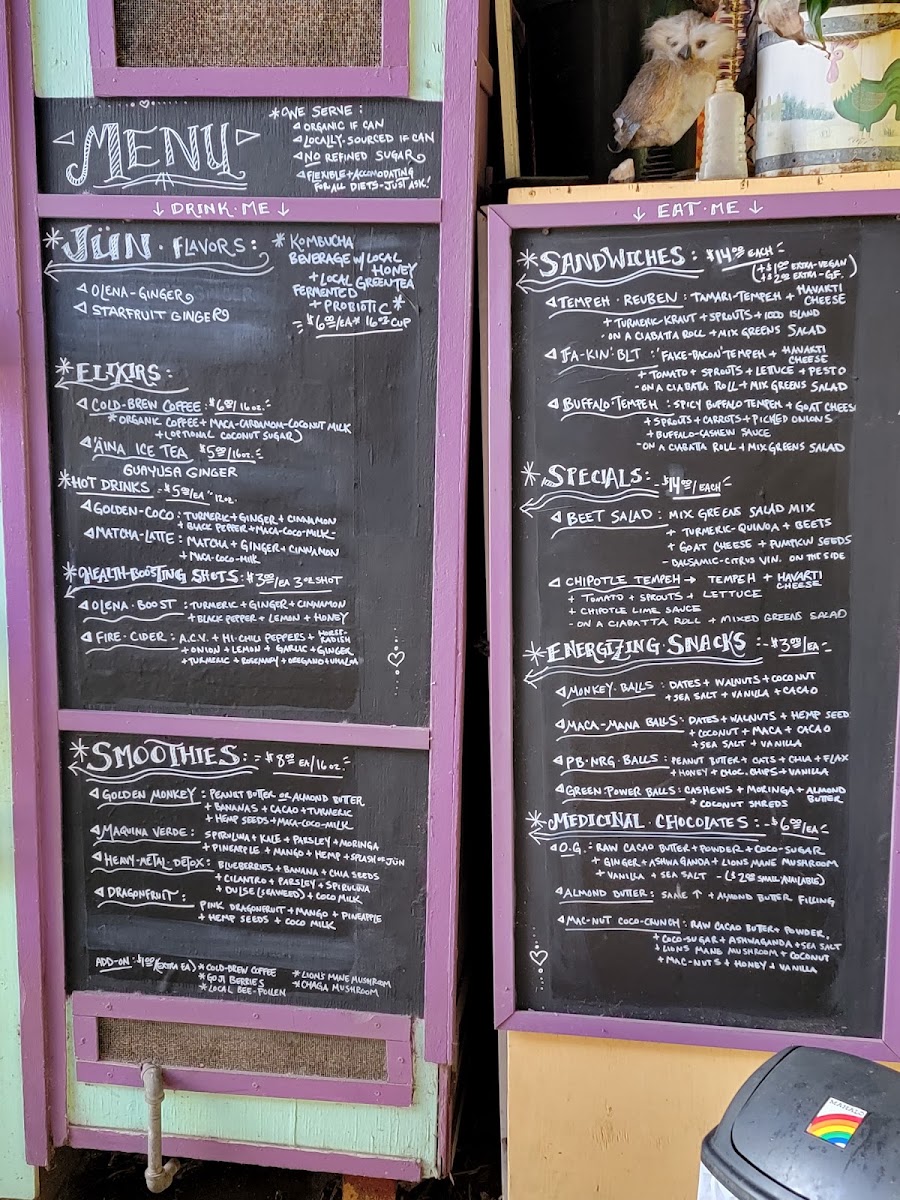 MENU
*WE SERVE:
ORGANIC IF CAN
LOCALLY-SOURCED IF CAN
NO REFINED SUGAR
FLEXIBLE + ACCOMODATING
FOR ALL DIETS - JUST ASK!
↓ DRINK·ME ↓
*JÜN·FLAVORS:
OLENA-GINGER
STARFRUIT GINGER
*KOMBUCHA
BEVERAGE W/ LOCAL
HONEY
+ LOCAL GREEN TEA
FERMENTED
+ PROBIOTIC*
= $6.00/EA* 16OZ CUP
*ELIXIRS:
COLD-BREW COFFEE: $6.00/16oz.
*ORGANIC COFFEE + MACA-CARDAMON-COCONUT MILK
+ (OPTIONAL COCONUT SUGAR)
'ĀINA ICE TEA $5.00/16oz.
GUAYUSA GINGER
*HOT DRINKS - $5.00/EA 12oz.
GOLDEN-COCO: TURMERIC + GINGER + CINNAMON
+ BLACK PEPPER + MACA-COCO-MILK
MATCHA-LATTE: MATCHA + GINGER + CINNAMON
+ MACA-COCO-MILK
*HEALTH-BOOSTING SHOTS: $3.00/EA 3OZ SHOT
OLENA·BOOST: TURMERIC + GINGER + CINNAMON
+ BLACK PEPPER + LEMON + HONEY
FIRE-CIDER: A.C.V. + HI-CHILI PEPPERS + HORSE-RADISH
+ ONION + LEMON + GARLIC + GINGER
+ TURMERIC + ROSEMARY + OREGANO
*SMOOTHIES: = $8.00 EA/16oz.
GOLDEN MONKEY: PEANUT BUTTER OR ALMOND BUTTER
+ BANANAS + CACAO + TURMERIC
+ HEMP SEEDS + MACA-COCO-MILK
MAQUINA VERDE: SPIRULINA + KALE + PARSLEY + MORINGA
+ PINEAPPLE + MANGO + HEMP + SPLASH OF JÜN
HEAVY-METAL-DETOX: BLUEBERRIES + BANANA + CHIA SEEDS
+ CILANTRO + PARSLEY + SPIRULINA
+ DULSE (SEAWEED) + COCO MILK
DRAGONFRUIT: PINK DRAGONFRUIT + MANGO + PINEAPPLE
+ HEMP SEEDS + COCO MILK
ADD-ON: $1.00 (EXTRA EA) *COLD-BREW COFFEE *LIONS MANE MUSHROOM
*GOJI BERRIES *CHAGA MUSHROOM
*LOCAL BEE-POLLEN
↓ EAT·ME ↓
*SANDWICHES: $14.00 EACH
(+$1.00 EXTRA-VEGAN
+$2.00 EXTRA-G.F.)
TEMPEH·REUBEN: TAMARI-TEMPEH + HAVARTI CHEESE
+ TURMERIC-KRAUT + SPROUTS + 1000 ISLAND
- ON A CIABATTA ROLL + MIX GREENS SALAD
FA-KIN' BLT: 'FAKE-BACON' TEMPEH + HAVARTI CHEESE
+ TOMATO + SPROUTS + LETTUCE + PESTO
- ON A CIABATA ROLL + MIX GREENS SALAD
BUFFALO-TEMPEH: SPICY BUFFALO TEMPEH + GOAT CHEESE
+ SPROUTS + CARROTS + PICKED ONIONS
+ BUFFALO-CASHEW SAUCE
- ON A CIABATTA ROLL + MIX GREENS SALAD
*SPECIALS: - $14.00/EACH
BEET SALAD: MIX GREENS SALAD MIX
+ TURMERIC-QUINOA + BEETS
+ GOAT CHEESE + PUMPKIN SEEDS
- BALSAMIC-CITRUS VIN. ON THE SIDE
CHIPOTLE TEMPEH → TEMPEH + HAVARTI CHEESE
+ TOMATO + SPROUTS + LETTUCE
+ CHIPOTLE LIME SAUCE
- ON A CIABATTA ROLL + MIXED GREENS SALAD
*ENERGIZING SNACKS - $3.00/EA -
MONKEY·BALLS: DATES + WALNUTS + COCONUT
+ SEA SALT + VANILLA + CACAO
MACA-MANA BALLS: DATES + WALNUTS + HEMP SEED
+ COCONUT + MACA + CACAO
+ SEA SALT + VANILLA
PB·NRG BALLS: PEANUT BUTTER + OATS + CHIA + FLAX
+ HONEY + CHOC. CHIPS + VANILLA
GREEN·POWER BALLS: CASHEWS + MORINGA + ALMOND BUTTER
+ COCONUT SHREDS
*MEDICINAL·CHOCOLATES: - $6.00/EA
O.G.: RAW CACAO BUTTER + POWDER + COCO-SUGAR
+ GINGER + ASHWAGANDA + LIONS MANE MUSHROOM
+ VANILLA + SEA SALT - ($2.00 SMALL/AVAILABLE)
ALMOND BUTTER: SAME ↑ + ALMOND BUTTER FILLING
MAC-NUT COCO-CRUNCH: RAW CACAO BUTTER + POWDER,
+ COCO-SUGAR + ASHWAGANDA + SEA SALT
+ LIONS MANE MUSHROOM + COCONUT
+ MAC-NUTS + HONEY + VANILLA